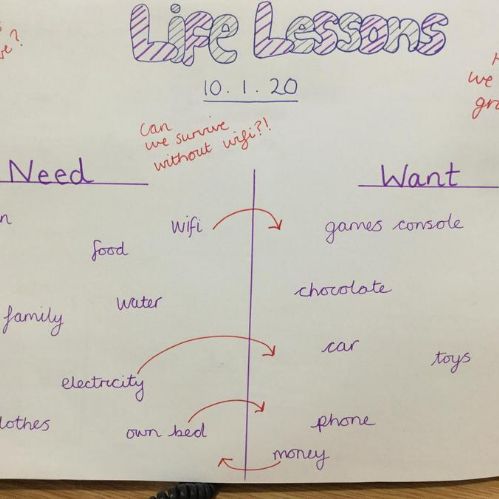 Life Lessons
10.1.20
Can
we survive
without wifi?!
we
Need
Want
wifi
games console
food
chocolate
water
family
car
toys
electricity
own bed
phone
money